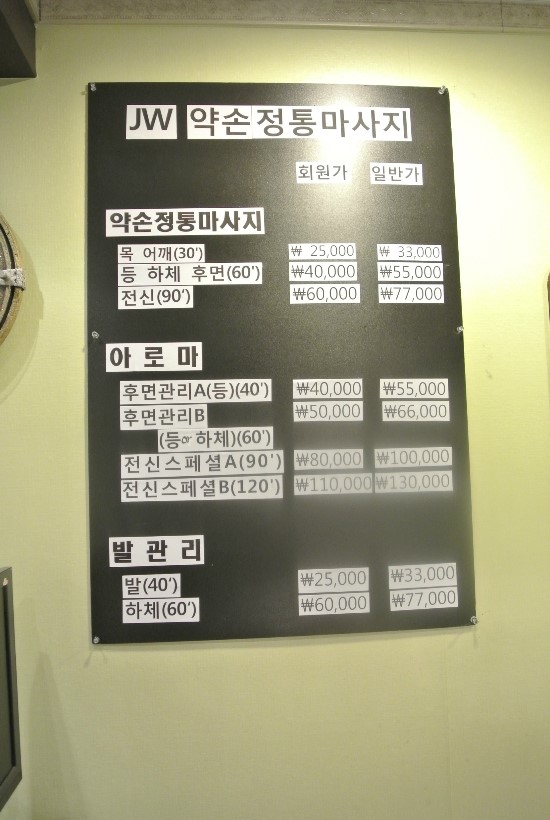 JW 약손정통마사지
회원가 일반가
약손정통마사지
목 어깨(30') ₩ 25,000 ₩ 33,000
등 하체 후면(60') ₩40,000 ₩55,000
전신(90') ₩60,000 ₩77,000
아 로 마
후면관리A(등)(40') ₩40,000 ₩55,000
후면관리B ₩50,000 ₩66,000
(등or하체)(60')
전신스페셜A(90') ₩80,000 ₩100,000
전신스페셜B(120') ₩110,000 ₩130,000
발 관 리
발(40') ₩25,000 ₩33,000
하체(60') ₩60,000 ₩77,000